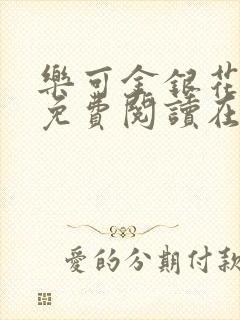 樂可金銀花
免費閱讀在
愛的分期付款